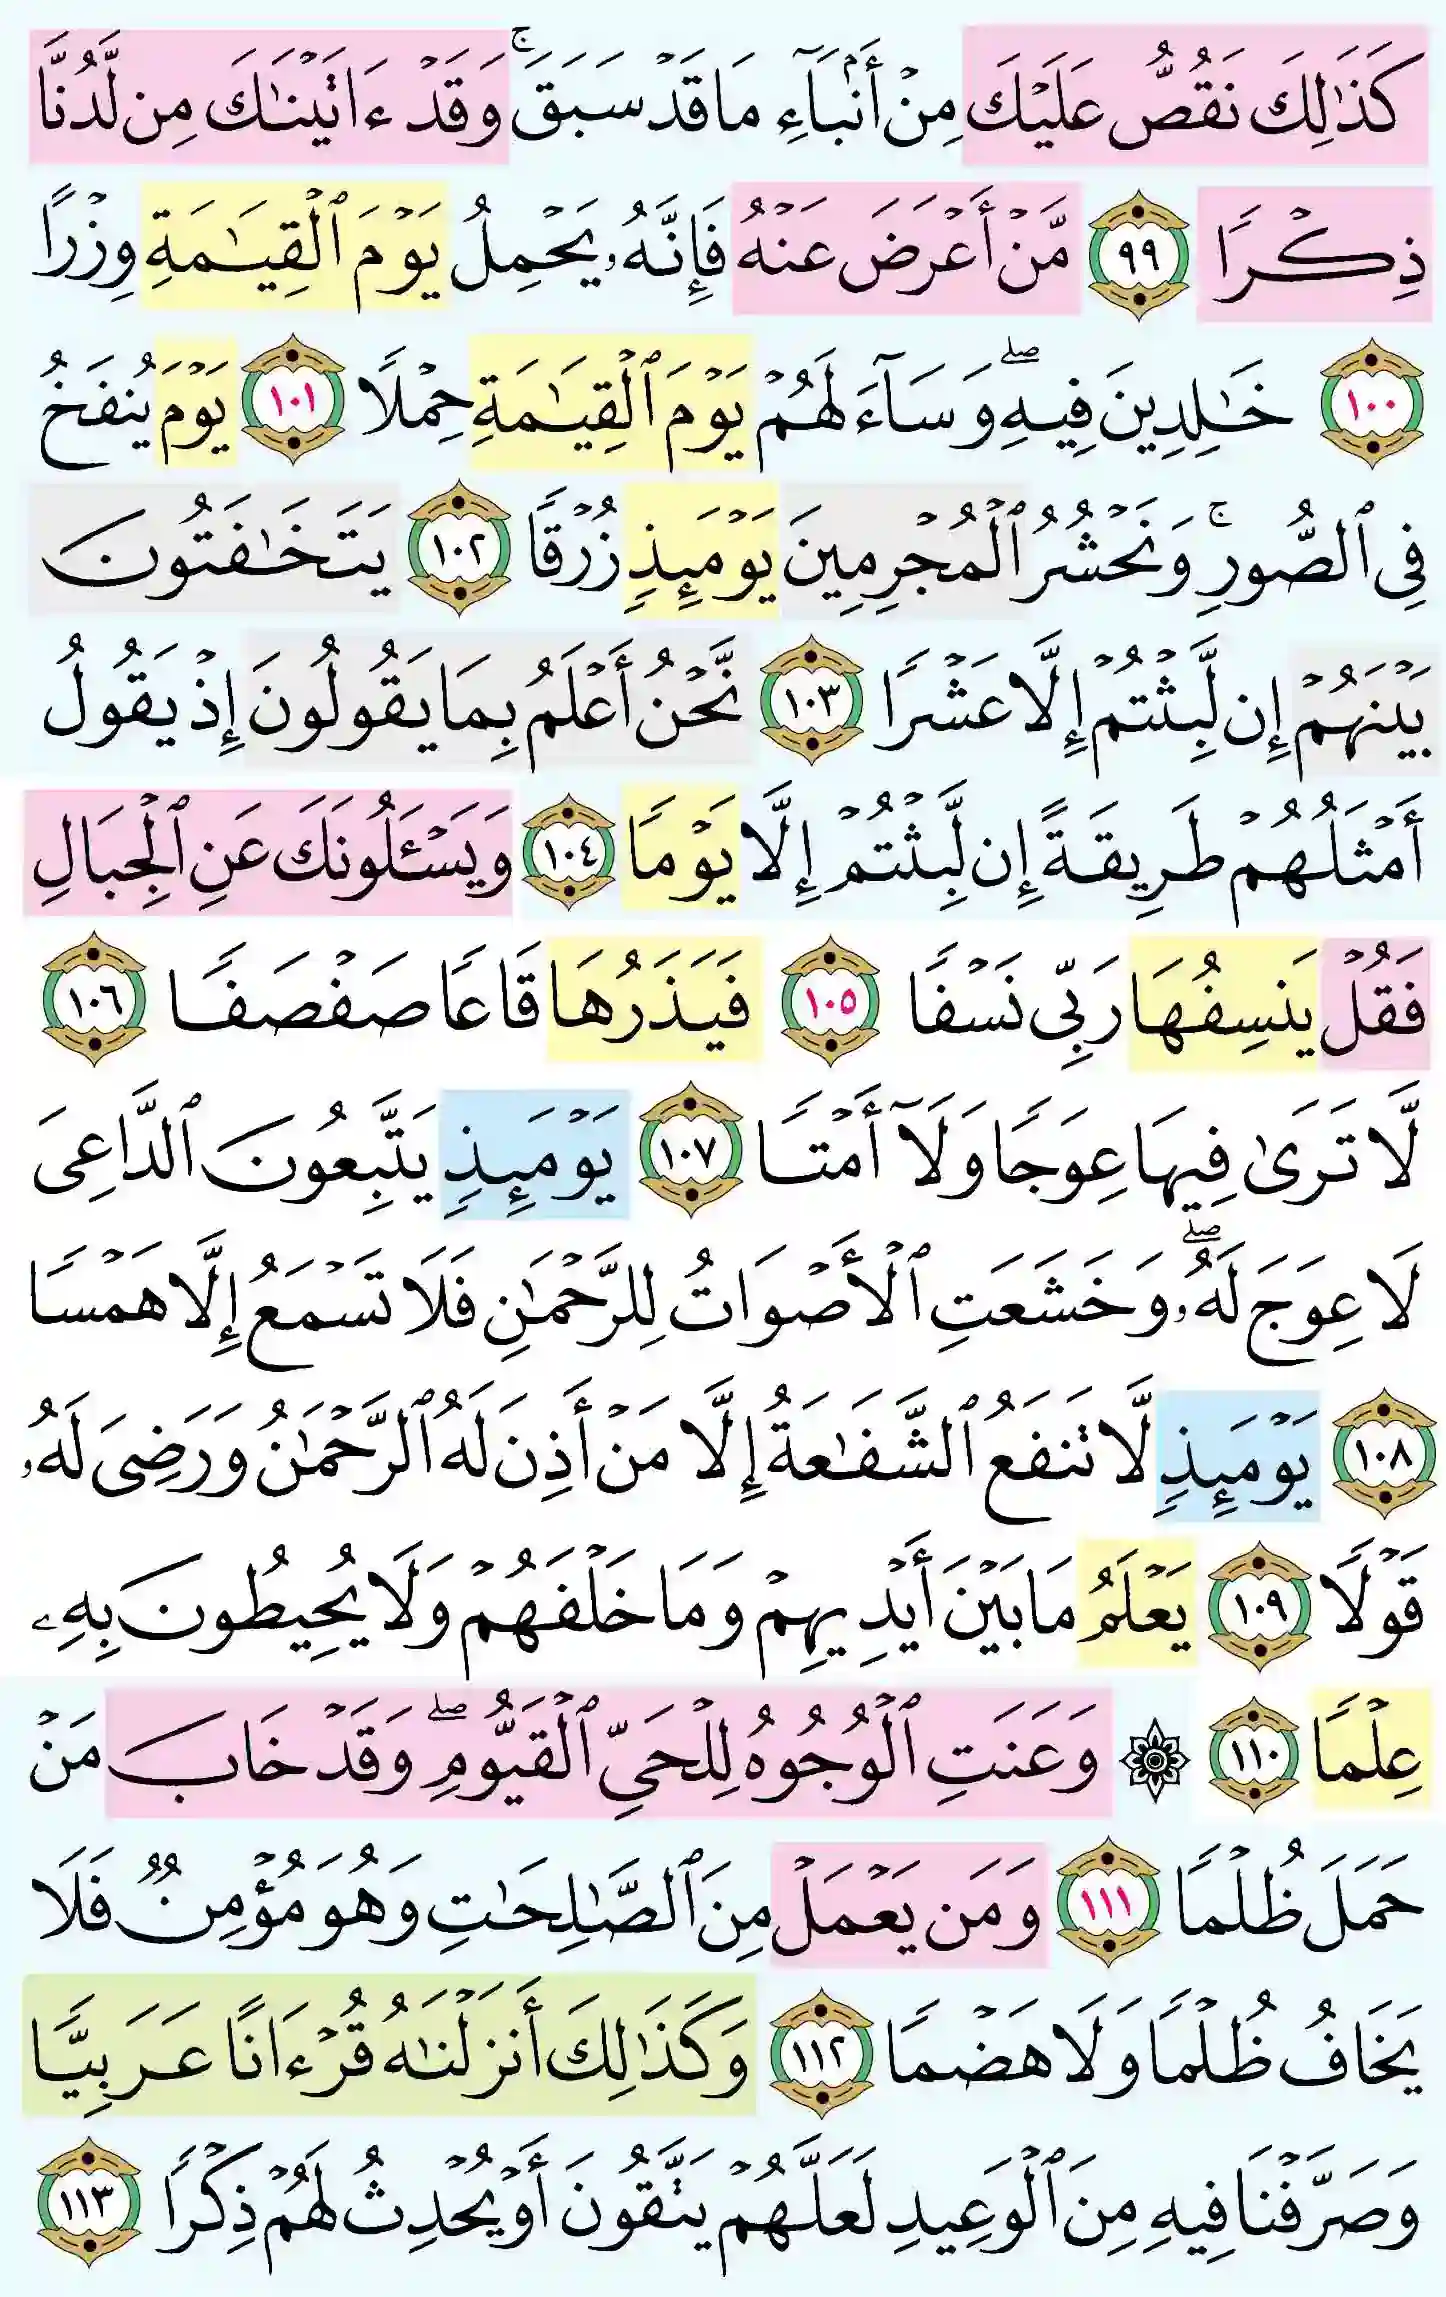 كَذَٰلِكَ نَقُصُّ عَلَيْكَ مِنْ أَنۢبَآءِ مَا قَدْ سَبَقَ ۚ وَقَدْ ءَاتَيْنَٰكَ مِن لَّدُنَّا
ذِكْرًا ٩٩ مَّنْ أَعْرَضَ عَنْهُ فَإِنَّهُۥ يَحْمِلُ يَوْمَ ٱلْقِيَٰمَةِ وِزْرًا
١٠٠ خَٰلِدِينَ فِيهِ ۖ وَسَآءَ لَهُمْ يَوْمَ ٱلْقِيَٰمَةِ حِمْلًا ١٠١ يَوْمَ يُنفَخُ
فِى ٱلصُّورِ ۚ وَنَحْشُرُ ٱلْمُجْرِمِينَ يَوْمَئِذٍ زُرْقًا ١٠٢ يَتَخَٰفَتُونَ
بَيْنَهُمْ إِن لَّبِثْتُمْ إِلَّا عَشْرًا ١٠٣ نَّحْنُ أَعْلَمُ بِمَا يَقُولُونَ إِذْ يَقُولُ
أَمْثَلُهُمْ طَرِيقَةً إِن لَّبِثْتُمْ إِلَّا يَوْمًا ١٠٤ وَيَسْـَٔلُونَكَ عَنِ ٱلْجِبَالِ
فَقُلْ يَنسِفُهَا رَبِّى نَسْفًا ١٠٥ فَيَذَرُهَا قَاعًا صَفْصَفًا ١٠٦
لَّا تَرَىٰ فِيهَا عِوَجًا وَلَآ أَمْتًا ١٠٧ يَوْمَئِذٍ يَتَّبِعُونَ ٱلدَّاعِىَ
لَا عِوَجَ لَهُۥ ۖ وَخَشَعَتِ ٱلْأَصْوَاتُ لِلرَّحْمَٰنِ فَلَا تَسْمَعُ إِلَّا هَمْسًا
١٠٨ يَوْمَئِذٍ لَّا تَنفَعُ ٱلشَّفَٰعَةُ إِلَّا مَنْ أَذِنَ لَهُ ٱلرَّحْمَٰنُ وَرَضِىَ لَهُۥ
قَوْلًا ١٠٩ يَعْلَمُ مَا بَيْنَ أَيْدِيهِمْ وَمَا خَلْفَهُمْ وَلَا يُحِيطُونَ بِهِۦ
عِلْمًا ١١٠ ۞ وَعَنَتِ ٱلْوُجُوهُ لِلْحَىِّ ٱلْقَيُّومِ ۖ وَقَدْ خَابَ مَنْ
حَمَلَ ظُلْمًا ١١١ وَمَن يَعْمَلْ مِنَ ٱلصَّٰلِحَٰتِ وَهُوَ مُؤْمِنٌ فَلَا
يَخَافُ ظُلْمًا وَلَا هَضْمًا ١١٢ وَكَذَٰلِكَ أَنزَلْنَٰهُ قُرْءَانًا عَرَبِيًّا
وَصَرَّفْنَا فِيهِ مِنَ ٱلْوَعِيدِ لَعَلَّهُمْ يَتَّقُونَ أَوْ يُحْدِثُ لَهُمْ ذِكْرًا ١١٣